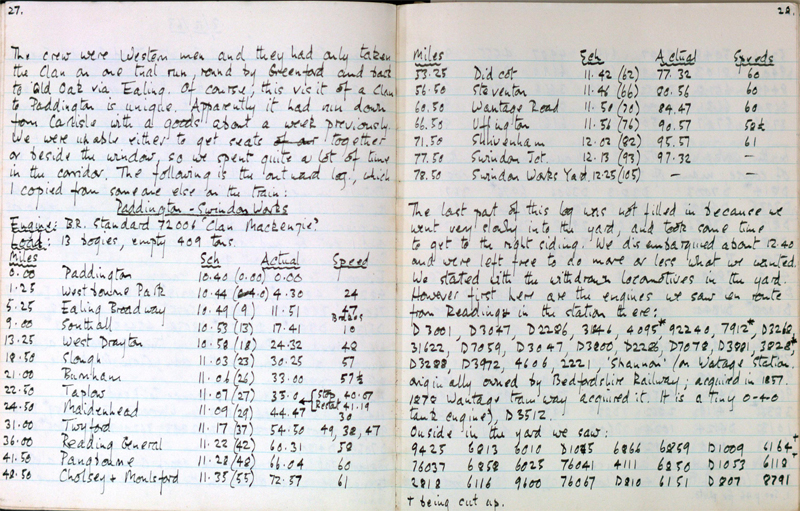 27.
The crew were Western men and they had only taken
the Clan on one trial run, round by Greenford and back
to Old Oak via Ealing. Of course, this visit of a Clan
to Paddington is unique. Apparently it had run down
from Carlisle with a goods about a week previously.
We were unable either to get seats together
or beside the window, so we spent quite a lot of time
in the corridor. The following is the outward log, which
I copied from someone else on the train:
Paddington - Swindon Works
Engine: B.R. Standard 72006 'Clan Mackenzie'
Load: 13 bogies, empty 409 tons.
Miles Sch Actual Speed
0.00 Paddington 10.40 (0.00) 0.00 -
1.25 Westbourne Park 10.44 4.30 24
5.25 Ealing Broadway 10.49 (9) 11.51 47
9.00 Southall 10.53 (13) 17.41 10
13.25 West Drayton 10.58 (18) 24.32 48
18.50 Slough 11.03 (23) 30.25 57
21.00 Burnham 11.06 (26) 33.00 57½
22.50 Taplow 11.07 (27) 35.0 { Stop 40.07
Restart 41.19
24.50 Maidenhead 11.09 (29) 44.47 30
31.00 Twyford 11.17 (37) 54.50 49, 38, 47
36.00 Reading General 11.22 (42) 60.31 58
41.50 Pangbourne 11.28 (48) 66.04 60
48.50 Cholsey + Moulsford 11.35 (55) 72.57 61
28.
Miles Sch Actual Speeds
53.25 Didcot 11.42 (62) 77.32 60
56.50 Steventon 11.46 (66) 80.56 60
60.50 Wantage Road 11.50 (70) 84.47 60
66.50 Uffington 11.56 (76) 90.57 58½
71.50 Shrivenham 12.02 (82) 95.57 61
77.50 Swindon Jct. 12.13 (93) 97.32 -
78.50 Swindon Works Yard, 12.25 (105) - -
The last part of this log was not filled in because we
went very slowly into the yard, and took some time
to get to the right siding. We disembarqued about 12.40
and were left free to do more or less what we wanted.
We started with the withdrawn locomotives in the yard.
However first here are the engines we saw en route
from Reading + in the station there:
D3001, D3047, D2286, 3846, 4095* 92240, 7912*, D3268,
31622, D7059, D3047, D3800, D2286, D7078, D3981, 3828*,
D3288, D3972, 4606, 2221, 'Shannon' (on Watage Station.
originally owned by Bedfordshire Railway; acquired in 1857.
1878 Wantage tramway acquired it. It is a tiny 0-4-0
tank engine), D3512.
Ouside in the yard we saw:
9425 6813 6010 D1085 6866 6859 D1009 6164†
76037 6858 6025 76041 4111 6850 D1053 6118
2818 6116 9600 76067 D810 6151 D807 8791
† being cut up.